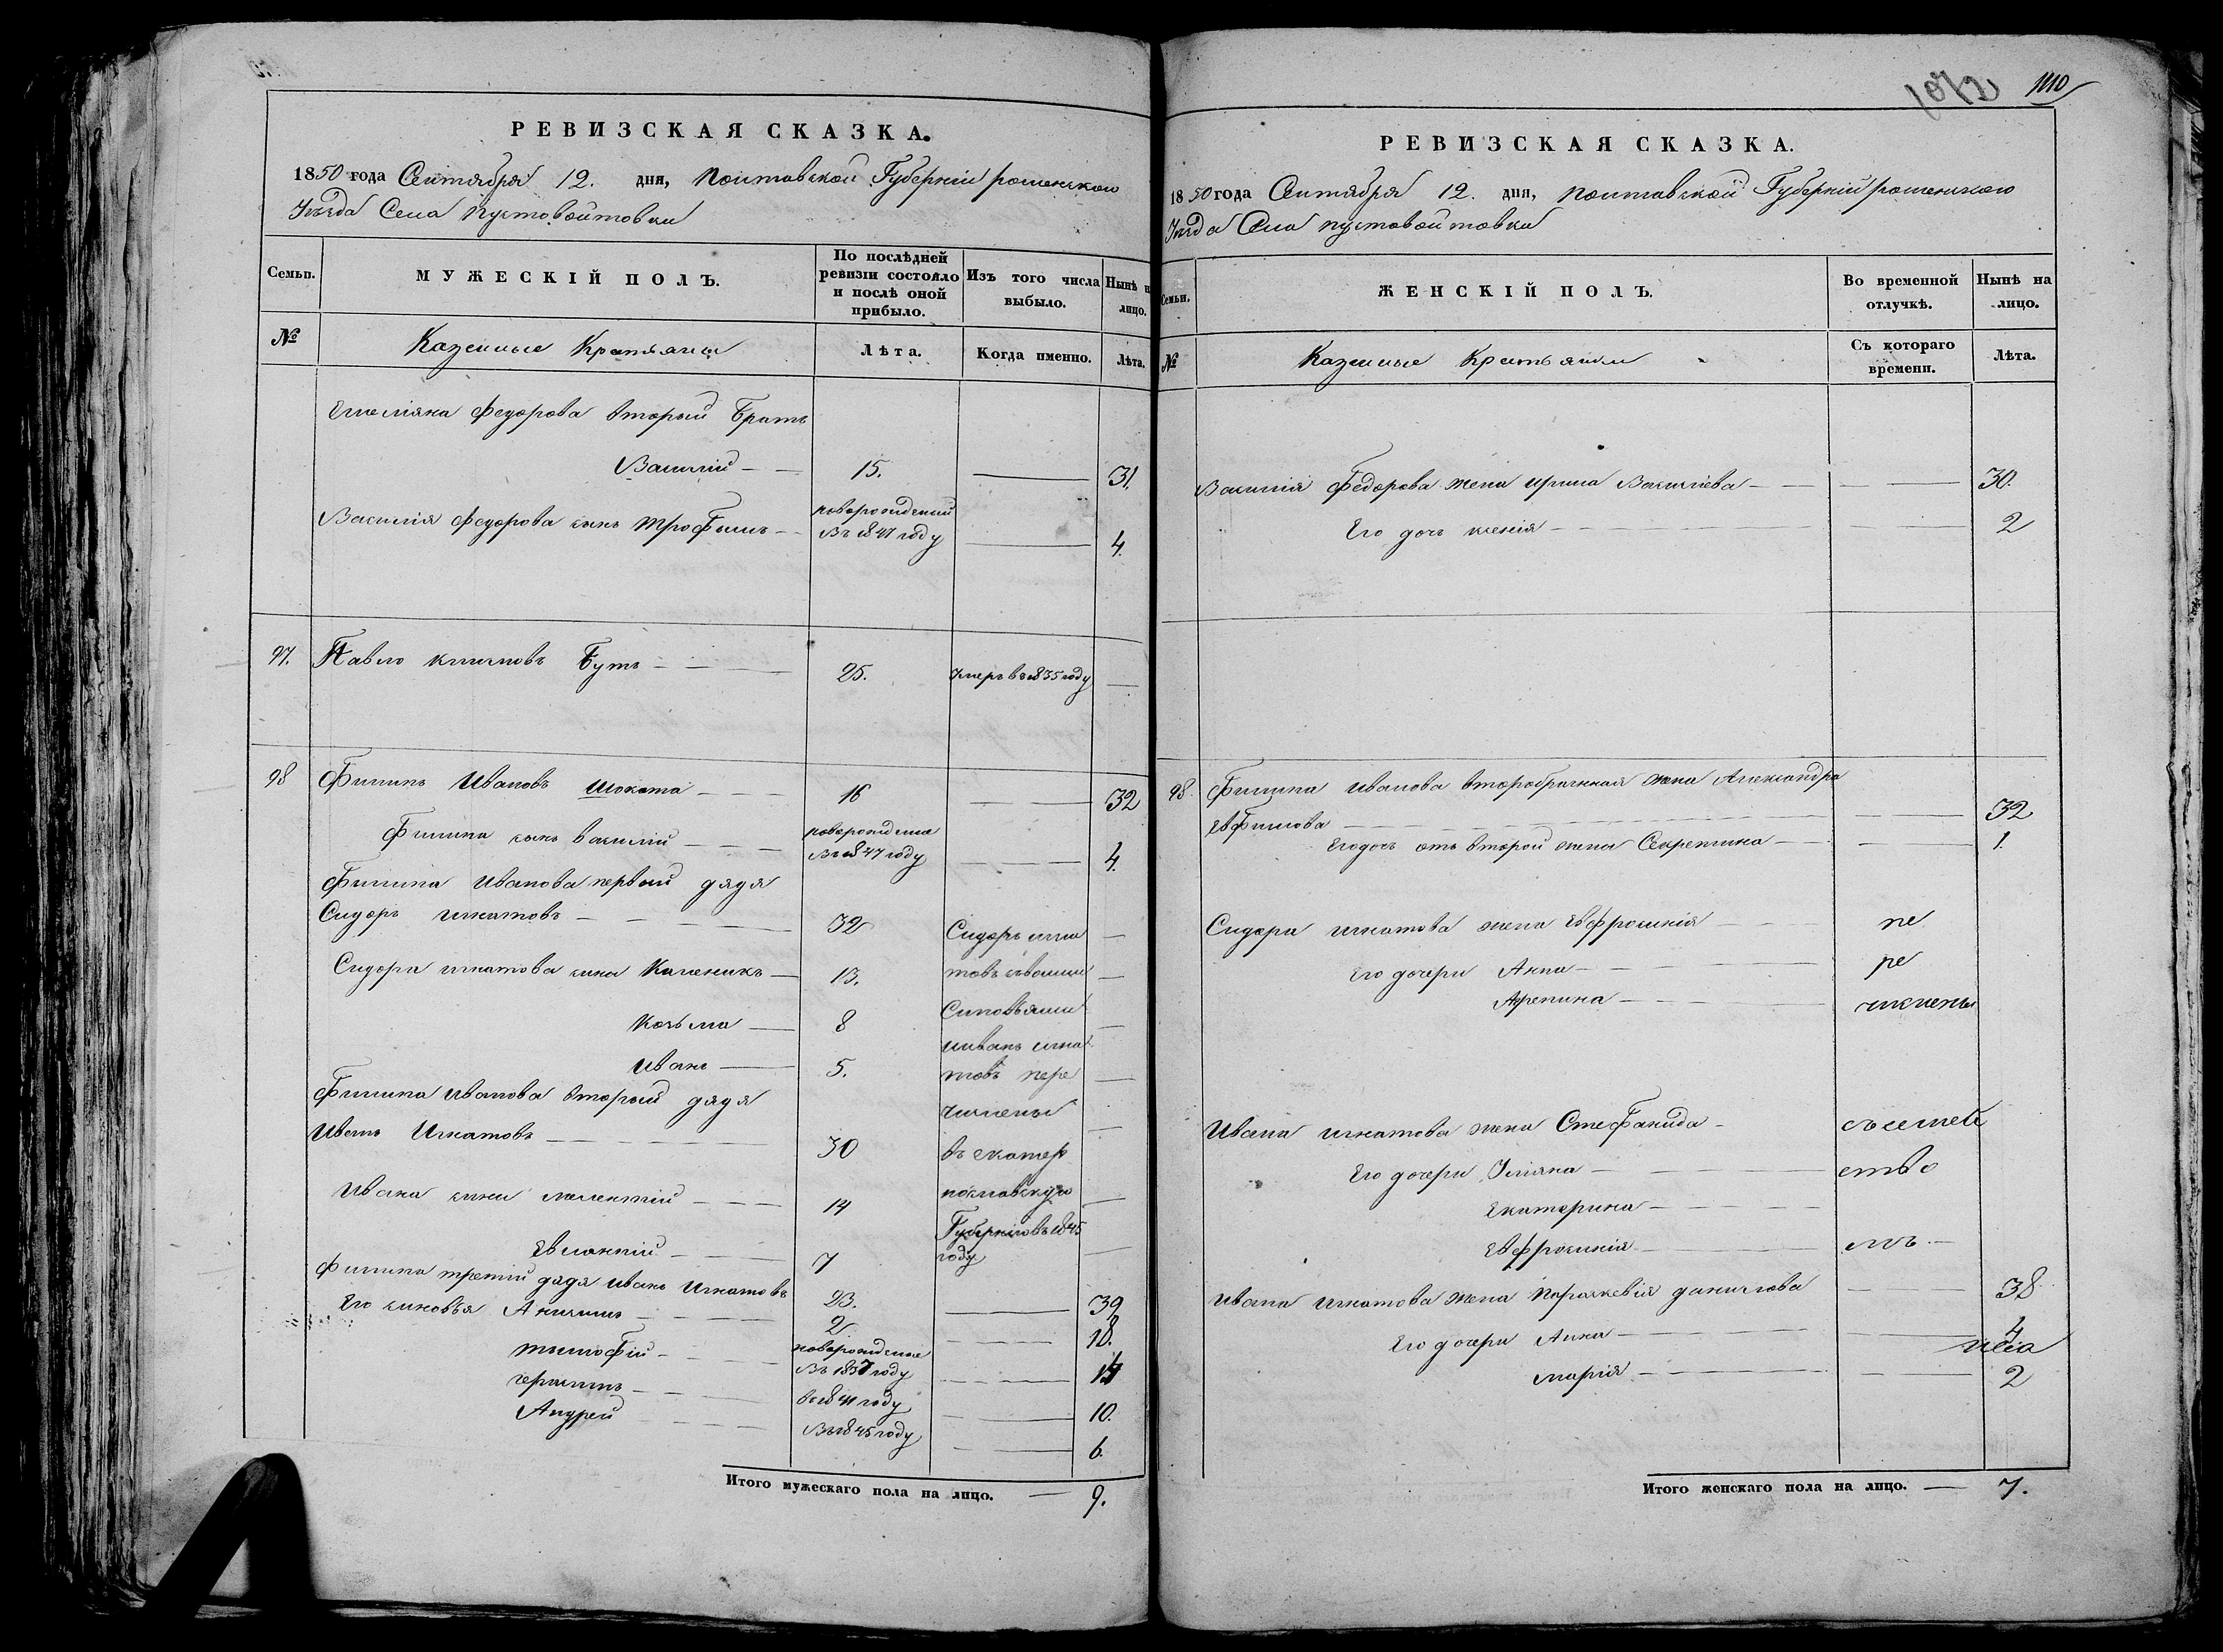 РЕВИЗСКАЯ СКАЗКА.
1850 года Сентября 12. дня, Полтавской Губернiи роменского
Уезда Села пустовойтовки
Семьи.
МУЖЕСКIЙ ПОЛЪ.
По послѣдней ревизiи состояло и послѣ оной прибыло.
Изъ того числа выбыло.
Нынѣ на лицо.
№
Казенные Крестьяне
Лѣта.
Когда именно.
Лѣта.
Емелiяна Федорова вторый Братъ
Василiй 15. 31.
Василiя Федорова сынъ трофимъ новорожденный въ 1847 году 4.
97. Павло климовъ Бутъ 25. умеръ въ 1835 году
98 Филипъ Ивановъ Шокота 16 32
Филипа сынъ василiй новорожденые въ 1847 году 4.
Филипа Иванова первый дядя
Сидоръ игнатовъ 32 Сидоръ игна
Сидора игнатова сина Каленикъ 13. товъ сваими
Синовьями
Козьма 8
иивань игна
Иванъ 5. товъ пере
Филипа Иванова вторый дядя
числены
Иванъ Игнатовъ 30 въ екатер
Ивана сини мелентiй 14 нославскую
Губернiю въ 1845
Евланпiй 7 году
Филипа третiй дядя Иванъ Игнатовъ 23. 39
Его синовья Анисимъ 2 18.
тимофiй новорожденые въ 1837 году 14
герасимъ въ 1841 году 10.
Андрей въ 1845 году 6.
Итого мужескаго пола на лицо. 9.
1072 1110
РЕВИЗСКАЯ СКАЗКА.
1850 года Сентября 12. дня, полтавской Губернiи роменского
Уезда Села пустовойтовки
Семьи.
ЖЕНСКIЙ ПОЛЪ.
Во временной отлучкѣ.
Нынѣ на лицо.
№
Казенные Крестьяни
Съ котораго времени.
Лѣта.
Василiя Федорова жена ирина Василiева 30.
Его дочь ксенiя 2
98. Филипа иванова второбрачная жена Александра
Евфимова 32
Его дочь отъ второй жены Секрепина 1.
Сидора игнатова жена Евфросинiя пе
Его дочери Анна ре
Агрепина числены
Ивана игнатова жена Стефанида съ семей
Его дочери Улiяна ство
Екатерина
Евфросинiя мъ
Ивана игнатова жена Параскевiя данилова 38
Его дочери Анна 4
Марiя 2
Итого женскаго пола на лицо. 7.